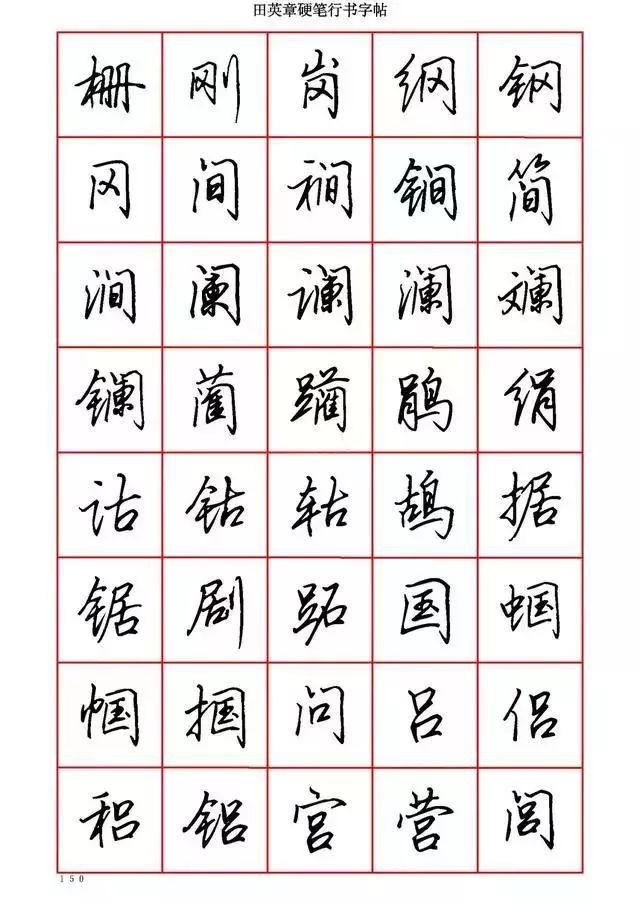 田英章硬笔行书字帖
栅 刚 岗 纲 钢
冈 间 裥 锏 简
涧 阑 谰 澜 斓
镧 蔺 躏 鹃 绢
诂 钴 轱 鸪 据
锯 剧 跖 国 蝈
帼 掴 问 吕 侣
稆 铝 宫 营 闾
150